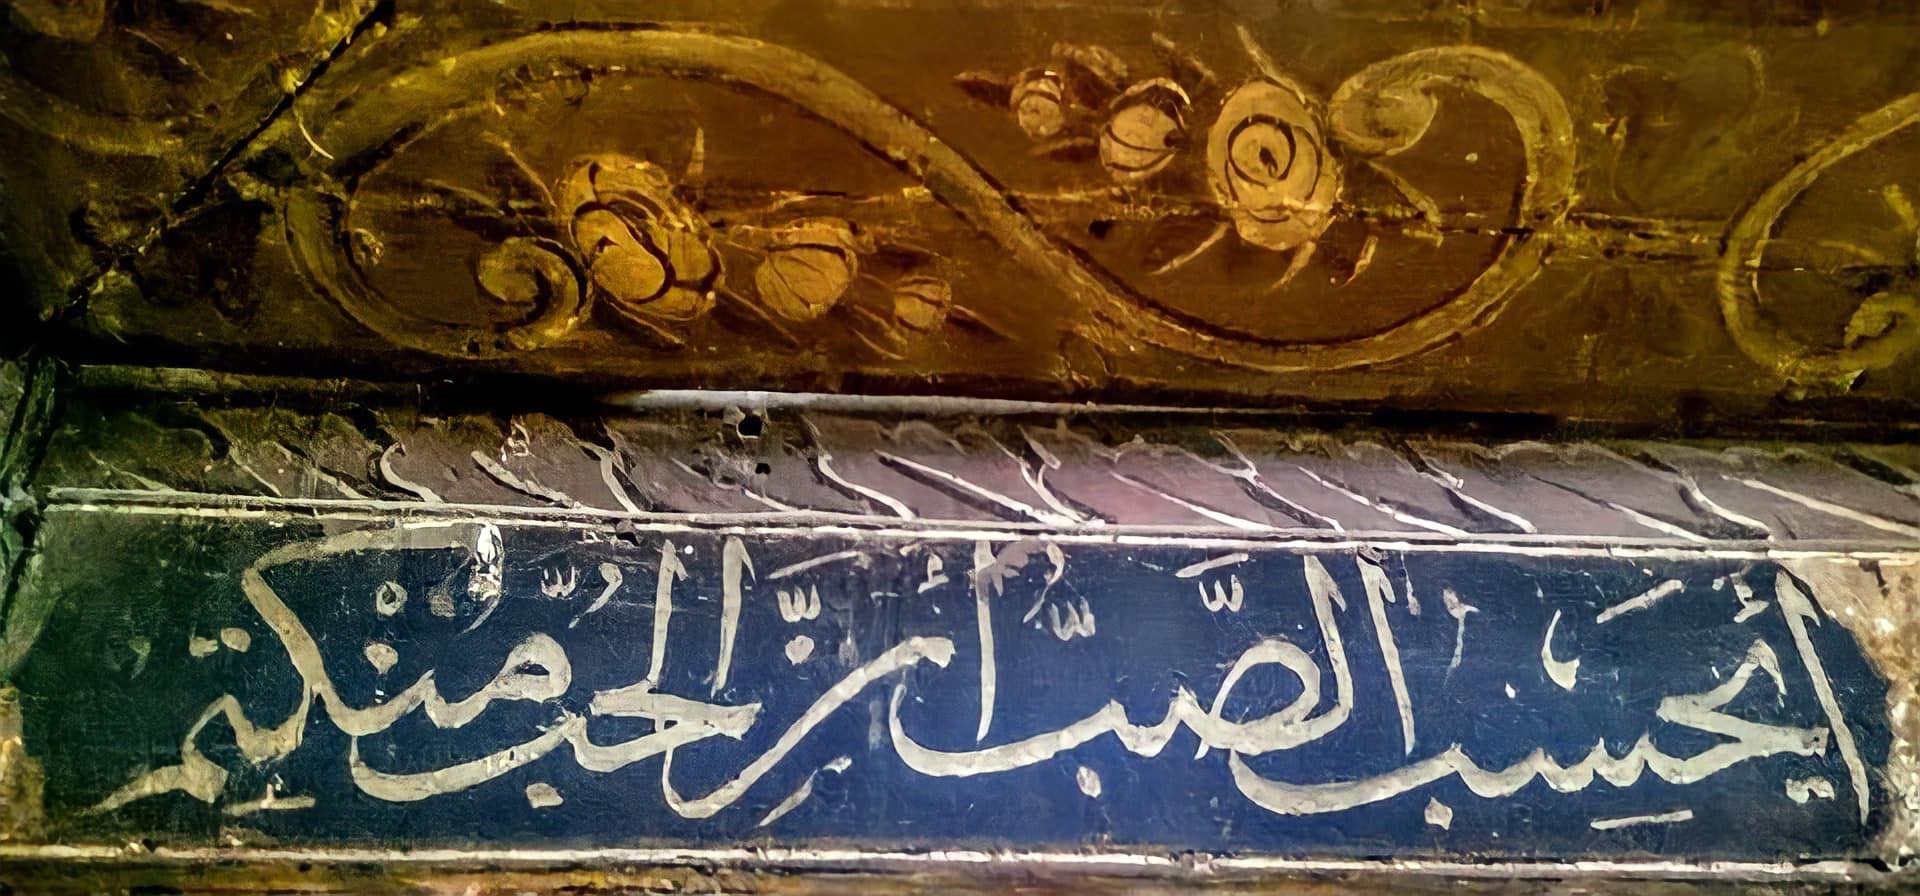 أَيَحْسَبُ الصَّبُّ أَنَّ الْحُبَّ مُنْكَتِمٌ